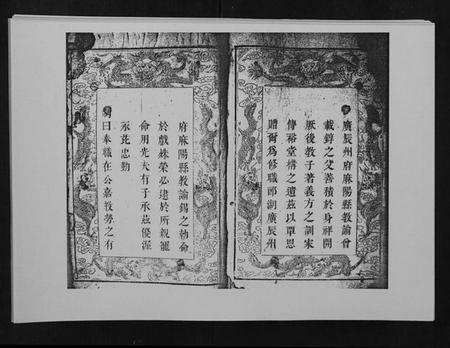 廣辰州府麻陽縣教諭曾
載錞之父善積於身祥開
厥後教子著義方之訓家
傳裕堂構之道茲以覃恩
贈爾爲修職郎湖廣辰州
府麻陽縣教諭錫之勅命
於戲殊榮必逮於所親寵
命用光夫有子承茲優渥
永芘忠勤
曰奉職在公嘉教勞之有